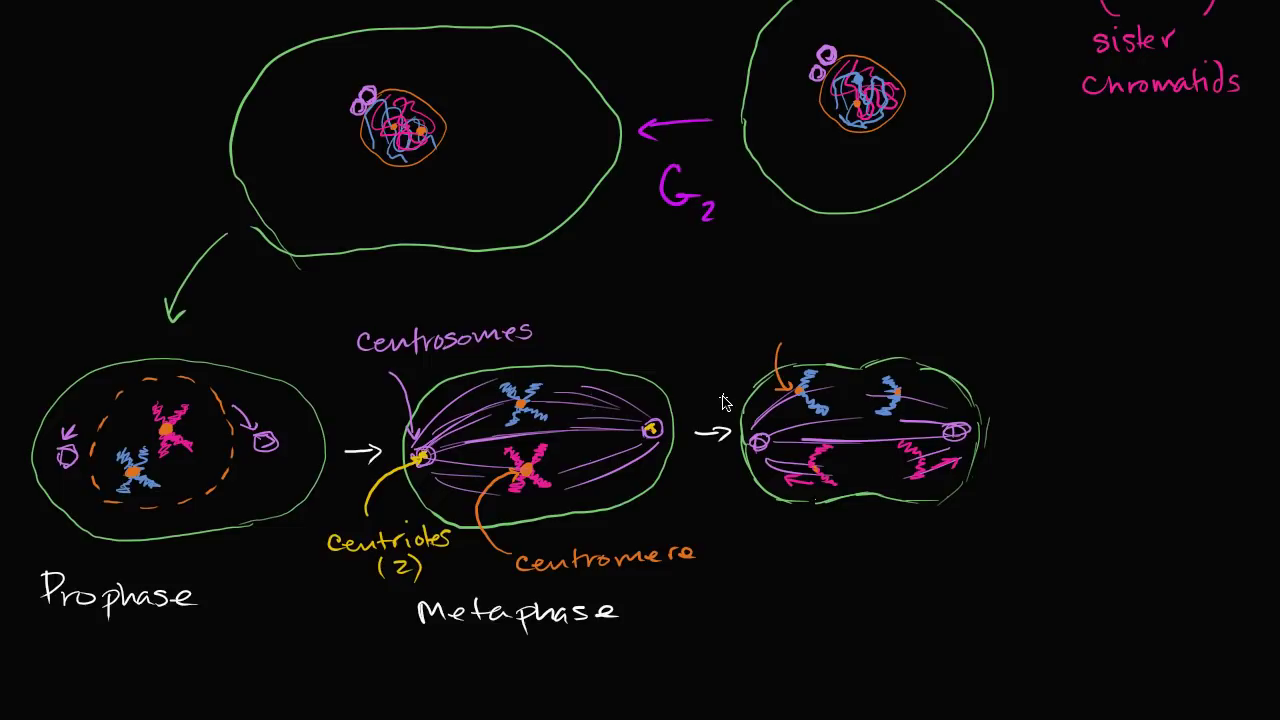 sister
chromatids
G2
centrosomes
centrioles
(2)
centromere
Prophase
Metaphase